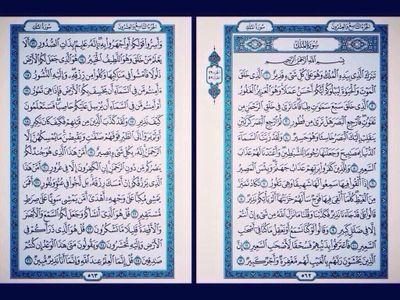 الجُزْءُ التَّاسِعُ وَالعِشْرُونَ
سُورَةُ المُلْكِ
سُورَةُ المُلْكِ
بِسْمِ اللَّهِ الرَّحْمَٰنِ الرَّحِيمِ
تَبَارَكَ الَّذِي بِيَدِهِ الْمُلْكُ وَهُوَ عَلَىٰ كُلِّ شَيْءٍ قَدِيرٌ ١ الَّذِي خَلَقَ
الْمَوْتَ وَالْحَيَاةَ لِيَبْلُوَكُمْ أَيُّكُمْ أَحْسَنُ عَمَلًا وَهُوَ الْعَزِيزُ الْغَفُورُ
٢ الَّذِي خَلَقَ سَبْعَ سَمَاوَاتٍ طِبَاقًا مَّا تَرَىٰ فِي خَلْقِ الرَّحْمَٰنِ مِن
تَفَاوُتٍ فَارْجِعِ الْبَصَرَ هَلْ تَرَىٰ مِن فُطُورٍ ٣ ثُمَّ ارْجِعِ الْبَصَرَ كَرَّتَيْنِ
يَنقَلِبْ إِلَيْكَ الْبَصَرُ خَاسِئًا وَهُوَ حَسِيرٌ ٤ وَلَقَدْ زَيَّنَّا السَّمَاءَ
الدُّنْيَا بِمَصَابِيحَ وَجَعَلْنَاهَا رُجُومًا لِّلشَّيَاطِينِ وَأَعْتَدْنَا لَهُمْ عَذَابَ
السَّعِيرِ ٥ وَلِلَّذِينَ كَفَرُوا بِرَبِّهِمْ عَذَابُ جَهَنَّمَ وَبِئْسَ الْمَصِيرُ
٦ إِذَا أُلْقُوا فِيهَا سَمِعُوا لَهَا شَهِيقًا وَهِيَ تَفُورُ ٧ تَكَادُ تَمَيَّزُ
مِنَ الْغَيْظِ كُلَّمَا أُلْقِيَ فِيهَا فَوْجٌ سَأَلَهُمْ خَزَنَتُهَا أَلَمْ يَأْتِكُمْ نَذِيرٌ ٨
قَالُوا بَلَىٰ قَدْ جَاءَنَا نَذِيرٌ فَكَذَّبْنَا وَقُلْنَا مَا نَزَّلَ اللَّهُ مِن شَيْءٍ إِنْ أَنتُمْ
إِلَّا فِي ضَلَالٍ كَبِيرٍ ٩ وَقَالُوا لَوْ كُنَّا نَسْمَعُ أَوْ نَعْقِلُ مَا كُنَّا فِي أَصْحَابِ
السَّعِيرِ ١٠ فَاعْتَرَفُوا بِذَنبِهِمْ فَسُحْقًا لِّأَصْحَابِ السَّعِيرِ ١١ إِنَّ
الَّذِينَ يَخْشَوْنَ رَبَّهُم بِالْغَيْبِ لَهُم مَّغْفِرَةٌ وَأَجْرٌ كَبِيرٌ ١٢
٥٦٢
الجُزْءُ التَّاسِعُ وَالعِشْرُونَ
سُورَةُ المُلْكِ
وَأَسِرُّوا قَوْلَكُمْ أَوِ اجْهَرُوا بِهِ إِنَّهُ عَلِيمٌ بِذَاتِ الصُّدُورِ ١٣ أَلَا
يَعْلَمُ مَنْ خَلَقَ وَهُوَ اللَّطِيفُ الْخَبِيرُ ١٤ هُوَ الَّذِي جَعَلَ لَكُمُ الْأَرْضَ
ذَلُولًا فَامْشُوا فِي مَنَاكِبِهَا وَكُلُوا مِن رِّزْقِهِ وَإِلَيْهِ النُّشُورُ ١٥
ءَأَمِنتُم مَّن فِي السَّمَاءِ أَن يَخْسِفَ بِكُمُ الْأَرْضَ فَإِذَا هِيَ تَمُورُ ١٦
أَمْ أَمِنتُم مَّن فِي السَّمَاءِ أَن يُرْسِلَ عَلَيْكُمْ حَاصِبًا فَسَتَعْلَمُونَ
كَيْفَ نَذِيرِ ١٧ وَلَقَدْ كَذَّبَ الَّذِينَ مِن قَبْلِهِمْ فَكَيْفَ كَانَ نَكِيرِ ١٨
أَوَلَمْ يَرَوْا إِلَى الطَّيْرِ فَوْقَهُمْ صَافَّاتٍ وَيَقْبِضْنَ مَا يُمْسِكُهُنَّ إِلَّا
الرَّحْمَٰنُ إِنَّهُ بِكُلِّ شَيْءٍ بَصِيرٌ ١٩ أَمَّنْ هَٰذَا الَّذِي هُوَ جُندٌ لَّكُمْ
يَنصُرُكُم مِّن دُونِ الرَّحْمَٰنِ إِنِ الْكَافِرُونَ إِلَّا فِي غُرُورٍ ٢٠ أَمَّنْ هَٰذَا
الَّذِي يَرْزُقُكُمْ إِنْ أَمْسَكَ رِزْقَهُ بَل لَّجُّوا فِي عُتُوٍّ وَنُفُورٍ ٢١ أَفَمَن
يَمْشِي مُكِبًّا عَلَىٰ وَجْهِهِ أَهْدَىٰ أَمَّن يَمْشِي سَوِيًّا عَلَىٰ صِرَاطٍ
مُّسْتَقِيمٍ ٢٢ قُلْ هُوَ الَّذِي أَنشَأَكُمْ وَجَعَلَ لَكُمُ السَّمْعَ وَالْأَبْصَارَ
وَالْأَفْئِدَةَ قَلِيلًا مَّا تَشْكُرُونَ ٢٣ قُلْ هُوَ الَّذِي ذَرَأَكُمْ فِي
الْأَرْضِ وَإِلَيْهِ تُحْشَرُونَ ٢٤ وَيَقُولُونَ مَتَىٰ هَٰذَا الْوَعْدُ إِن كُنتُمْ
صَادِقِينَ ٢٥ قُلْ إِنَّمَا الْعِلْمُ عِندَ اللَّهِ وَإِنَّمَا أَنَا نَذِيرٌ مُّبِينٌ ٢٦
٥٦٣